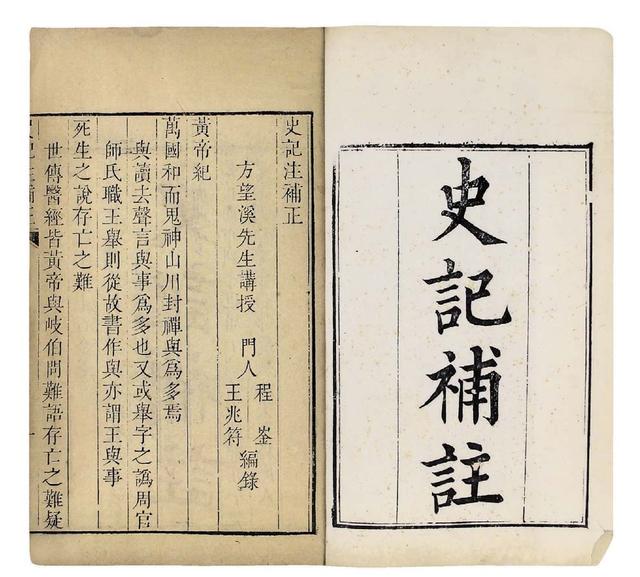 史記補註
史記注補正
方望溪先生講授 門人 程崟 王兆符 編錄
黃帝紀
萬國和而鬼神山川封禪與爲多焉
與讀去聲言與事爲多也又或舉字之譌周官
師氏職王舉則從故書作與亦謂王與事
死生之說存亡之難
世傳醫經皆黃帝與岐伯問難語存亡之難疑